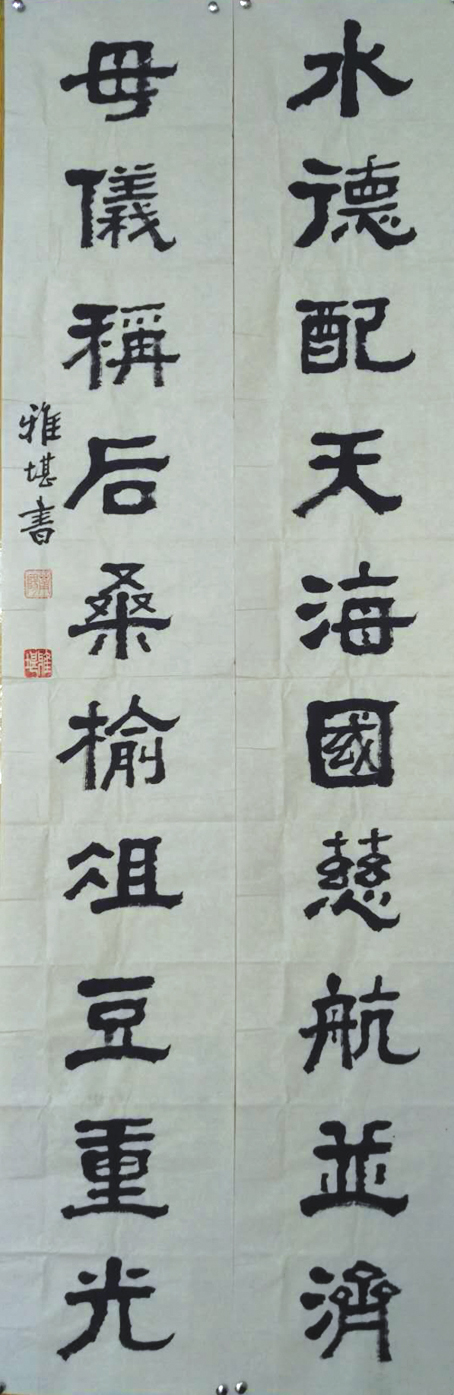 水德配天海國慈航並濟
母儀稱后桑榆俎豆重光
雅堪書